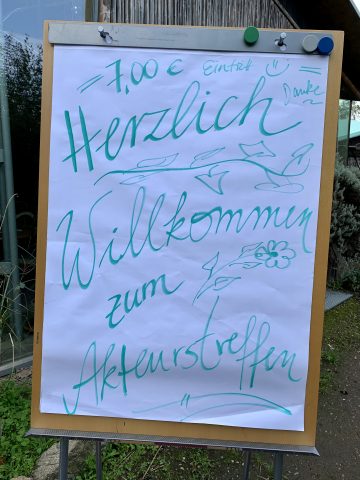 = 7,00 € Eintritt =
Danke
Herzlich
Willkommen
zum
Akteurstreffen